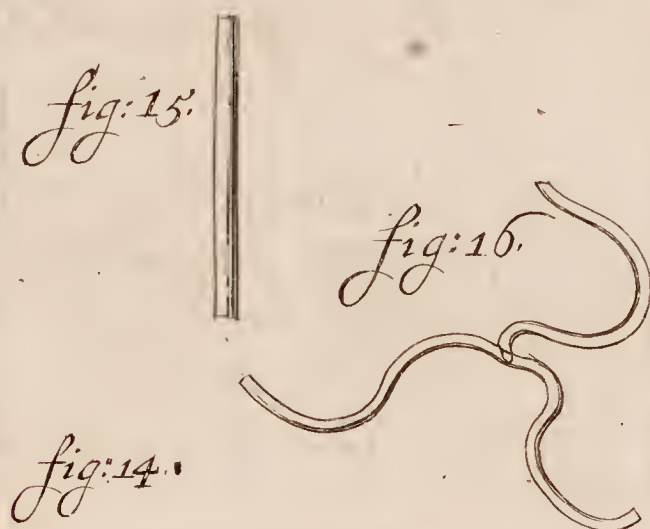 fig: 15.
fig: 16.
fig: 14.